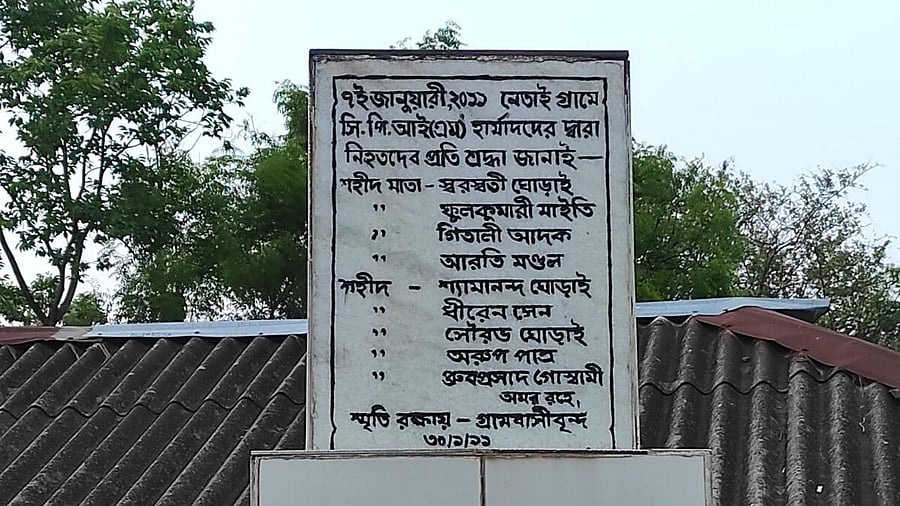 ৭ই জানুয়ারী, ২০১১ নেতাই গ্রামে
সি.পি.আই(এম) হার্মাদদের দ্বারা
নিহতদেব প্রতি শ্রদ্ধা জানাই—
শহীদ মাতা - স্বরস্বতী ঘোড়াই
" ফুলকুমারী মাইতি
" গিতালী আদক
" আরতি মণ্ডল
শহীদ - শ্যামানন্দ ঘোড়াই
" ধীরেন সেন
" সৌরভ ঘোড়াই
" অরুপ পাত্র
" ধ্রুবপ্রসাদ গোস্বামী
অমর রহে,
স্মৃতি রক্ষায় - গ্রামবাসীবৃন্দ
৩০/১/১১